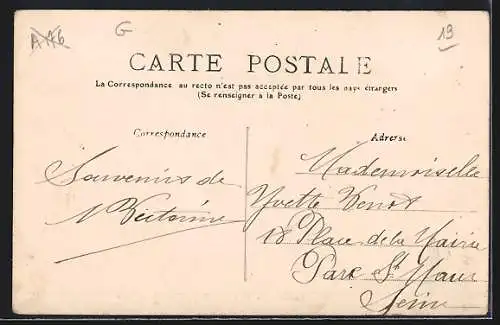 A 176
G
19
CARTE POSTALE
La Correspondance au recto n'est pas acceptée par tous les pays étrangers
(Se renseigner à la Poste)
Correspondance
Adresse
Souvenirs de
Victorine
Mademoiselle
Yvette
18 Place de la Mairie
Parc St Maur
Seine